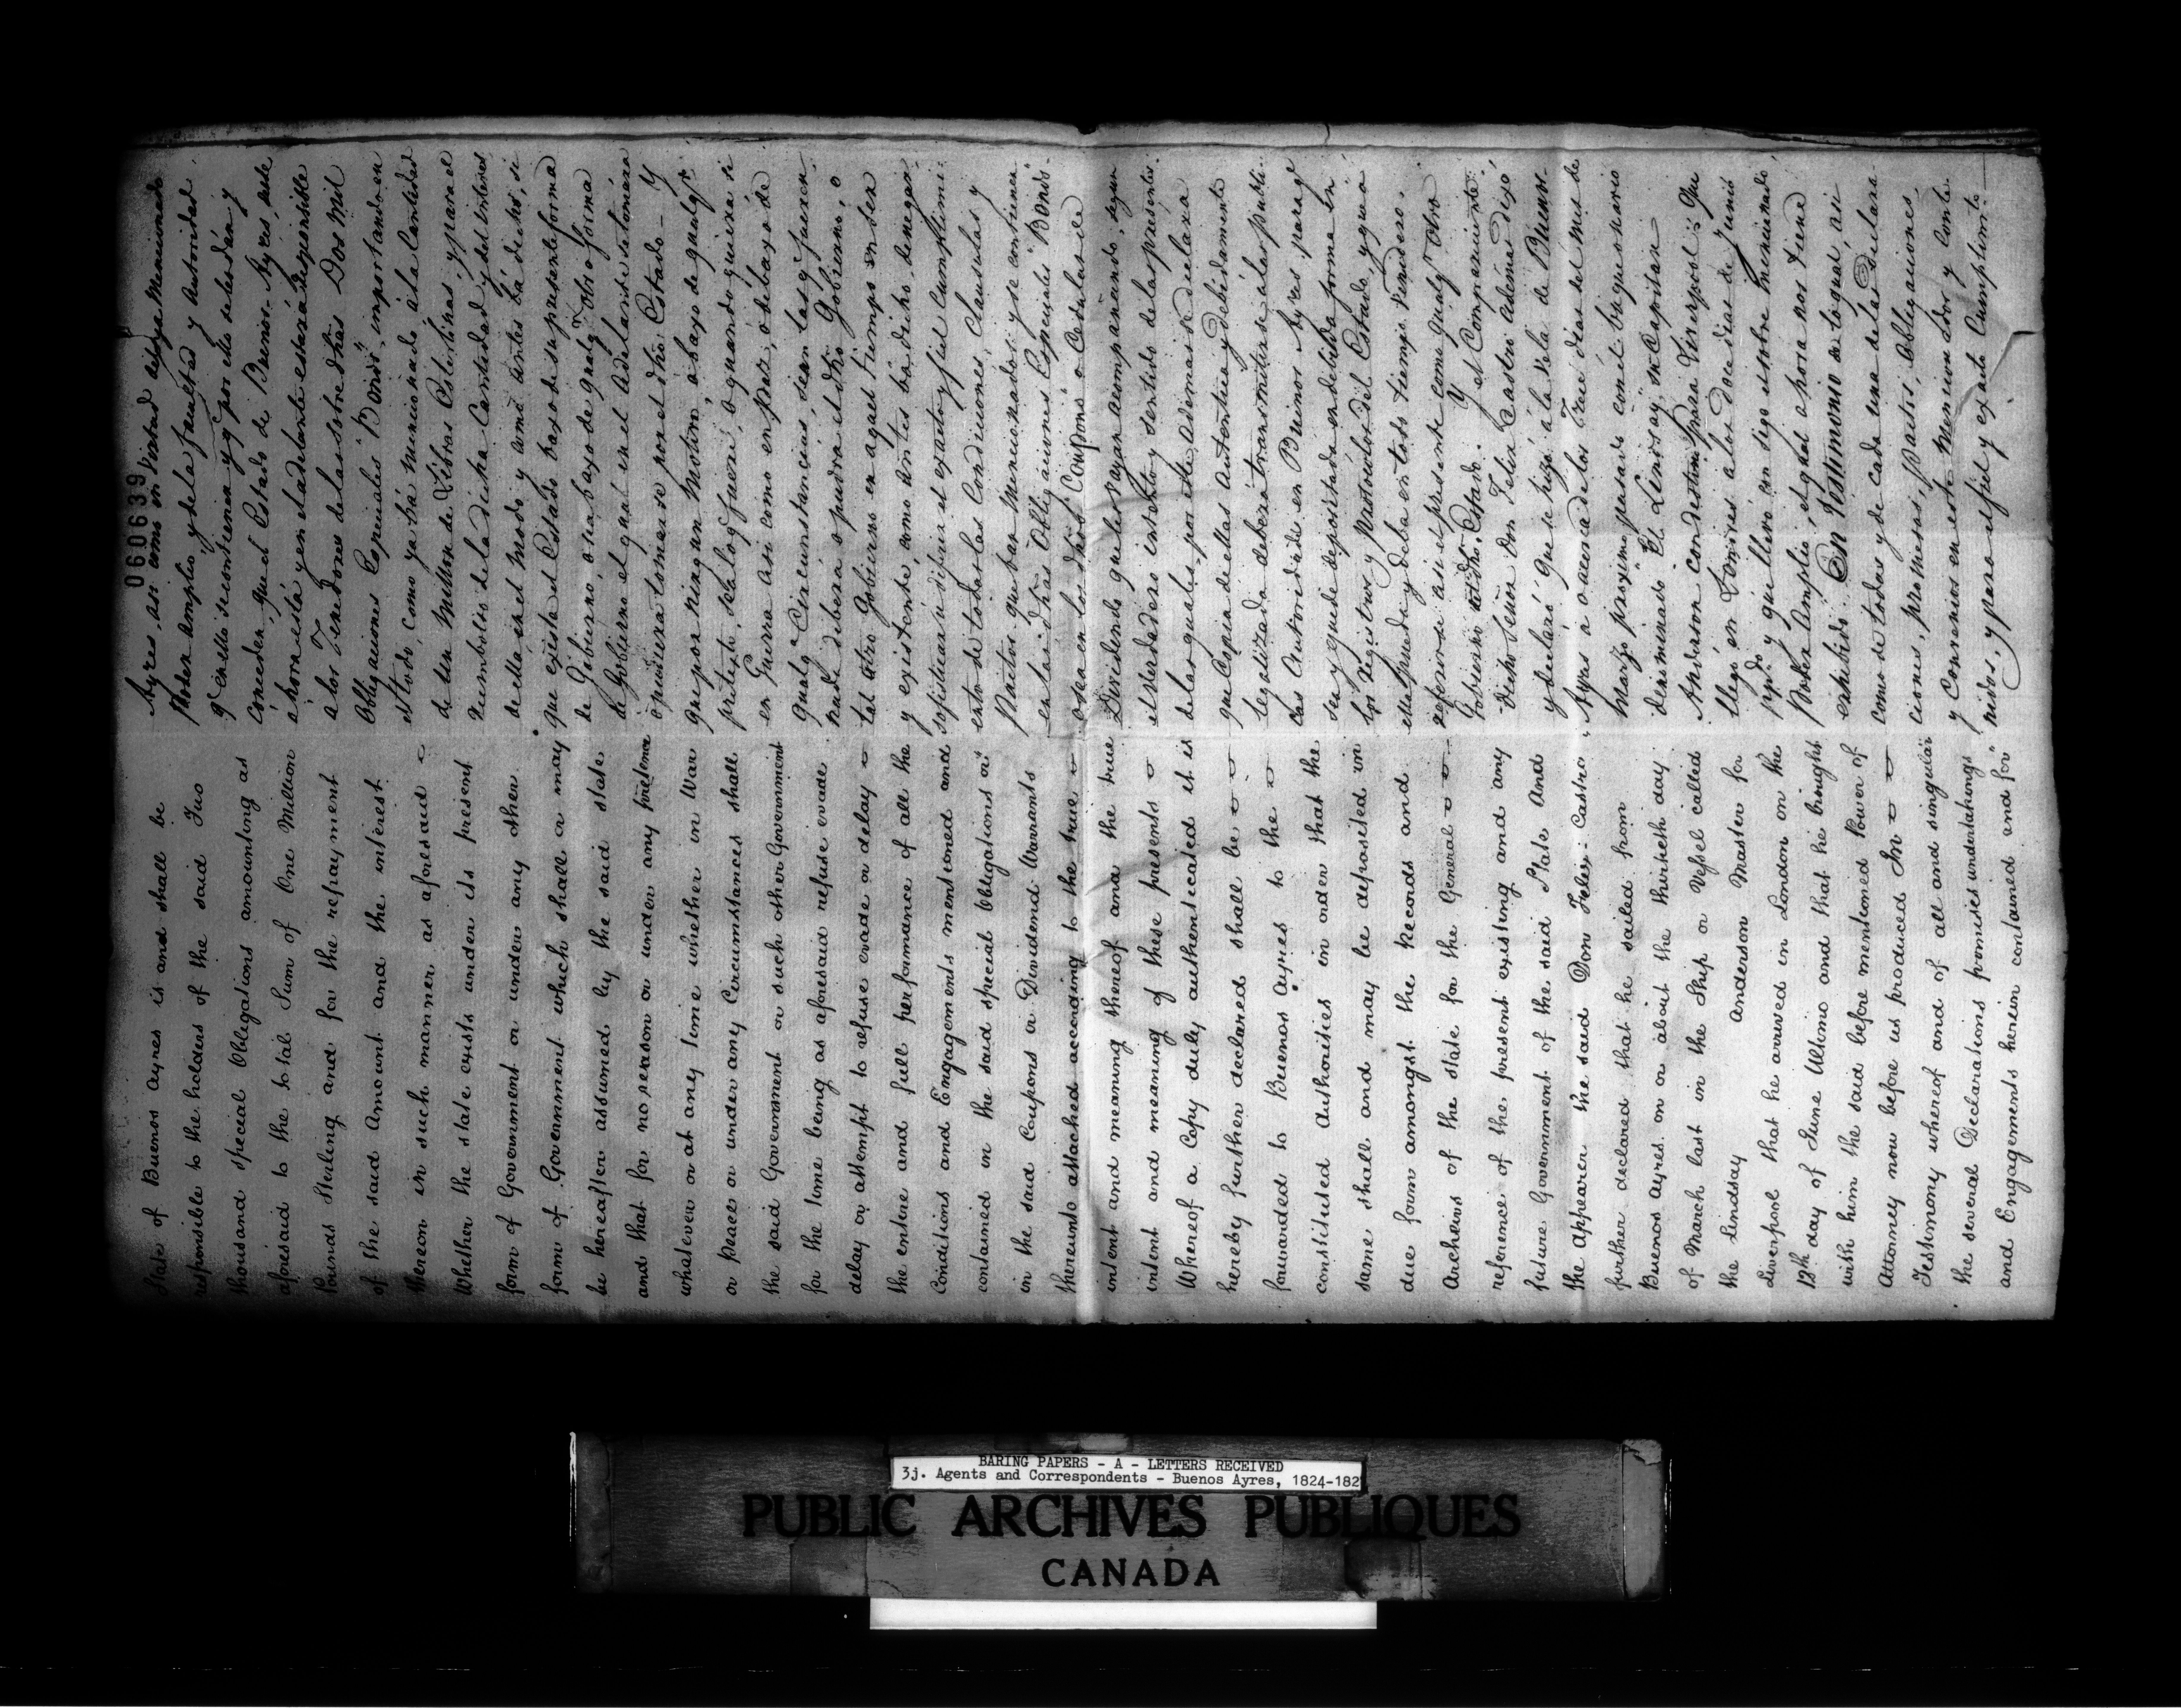 State of Buenos Ayres is and shall be
responsible to the holders of the said Two
thousand special Obligations amounting as
aforesaid to the total Sum of One Million
Pounds Sterling and for the repayment
of the said Amount and the interest
thereon in such manner as aforesaid
Whether the state exists under its present
form of Government or under any other
form of Government which shall or may
be hereafter assumed by the said state
and that for no reason or under any pretence
whatever or at any time whether in War
or Peace or under any Circumstances shall
the said Government or such other Government
for the time being as aforesaid refuse evade
delay or attempt to refuse evade or delay
the entire and full performance of all the
Conditions and Engagements mentioned and
contained in the said special Obligations or
in the said Coupons or Dividend Warrants
thereunto attached according to the true
intent and meaning thereof and the true
intent and meaning of these presents
Whereof a Copy duly authenticated it is
hereby further declared shall be
forwarded to Buenos Ayres to the
constituted Authorities in order that the
same shall and may be deposited in
due form amongst the Records and
Archeives of the state for the General
reference of the present existing and any
future Government of the said State And
the Appearer the said Don Felix Castro
further declared that he sailed from
Buenos Ayres on or about the thirtieth day
of March last in the Ship or Vessel called
the Lindsay Anderson Master for
Liverpool that he arrived in London on the
12th day of June Ultimo and that he brought
with him the said before mentioned Power of
Attorney now before us produced In
Testimony whereof and of all and singular
the several Declarations promises undertakings
and Engagements herein contained and for
060639
Ayres, asi como en virtud del ya Mencionado
Poder amplio, y de la facultad y Autoridad
q en ello se contiene y q por ello se les dán y
Conceden, que el Estado de Buenos-Ayres, desde
ahora está y en el adelante estará Responsible
a los Tenedores de las sobre dhas Dos Mil
Obligaciones Especiales "Bonds", importando en
el todo, como ya bá mencionado á la Cantidad
de Un Millon de Libras Esterlinas, y para el
Reembolso de la dicha Cantidad y del interes
de ella, en el Modo y como antes bá dicho, si
que exista el Estado baxo de su presente forma
de Gobierno, o sea baxo de qualqa otra forma
de Gobierno el qual en el Adelante se tomára
o pudiera tomarse por el dho Estado - Y
que por ningun Motivo, ó baxo de qualqr
pretexto, sea lo q fuere, o quando quiera si
en Guerra asi como en Paz, ó debaxo de
qualqa Circunstancias, sean las q fuexen
nunca deberá o pudra el dho Gobierno, o
tal otro Gobierno en aquel Tiempo en ser
y existente, como antes bá dicho, denegar
sofisticar u diferir el exacto y fiel Cumplimi-
ento de todas las Condiciones, Clausulas y
Pactos que ban Mencionados y se contienen
en las dhas Obligaciones Especiales "Bonds"
o sea en los dhos "Coupons" o Cedulas de
Dividendo que les vayan acompañando, segun
el verdadero intento y sentido de las presentes.
de las quales, por esta, ademas se declara
que Copia de ellas autentica y debidamente
legalizada deberá transmitirse a las publi-
cas Autoridades en Buenos Ayres, para q
sea y quede depositada en debida forma en
los Registros y Protocolos del Estado, y que á
ella pueda y deba en todo tiempo venidero,
referirse asi el presente como qualqr Otro
Gobierno del dho Estado. Y el Compareciente
dicho Señor Don Felix Castro ademas dixó
y declaró que se hizó á la Vela de Buenos-
Ayres a o acerca de los Trece dias del mes de
Marzo proximo pasado con el buque o navio
denominado "El Lindsay", su Capitan
Anderson con destino para Liverpool = Que
llegó en Londres a los doce dias de Junio
ppdo y que llevó con sigo el sobre mencionado
Poder Amplio, el qual ahora nos viene
exhibido. En Testimonio de lo qual, asi
como de todas y de cada una de las Declara
ciones, promesas, Pactos, Obligaciones
y Convenios en esta Mencionados y Conte-
nidos, y para el fiel y exacto Cumplimi-
BARING PAPERS - A - LETTERS RECEIVED
3j. Agents and Correspondents - Buenos Ayres, 1824-182
PUBLIC ARCHIVES PUBLIQUES
CANADA